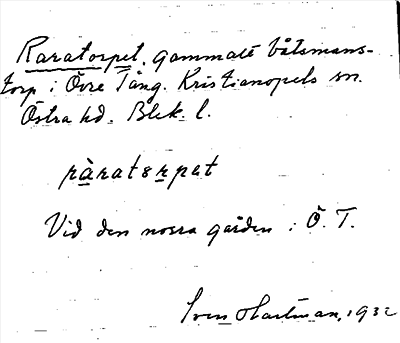 Raratorpet. Gammalt båtsmans-
torp i Övre Tång. Kristianopels sn.
Östra hd. Blek. l.
ràratorpet
Vid den norra gården i Ö. T.
Sven Hartman, 1932